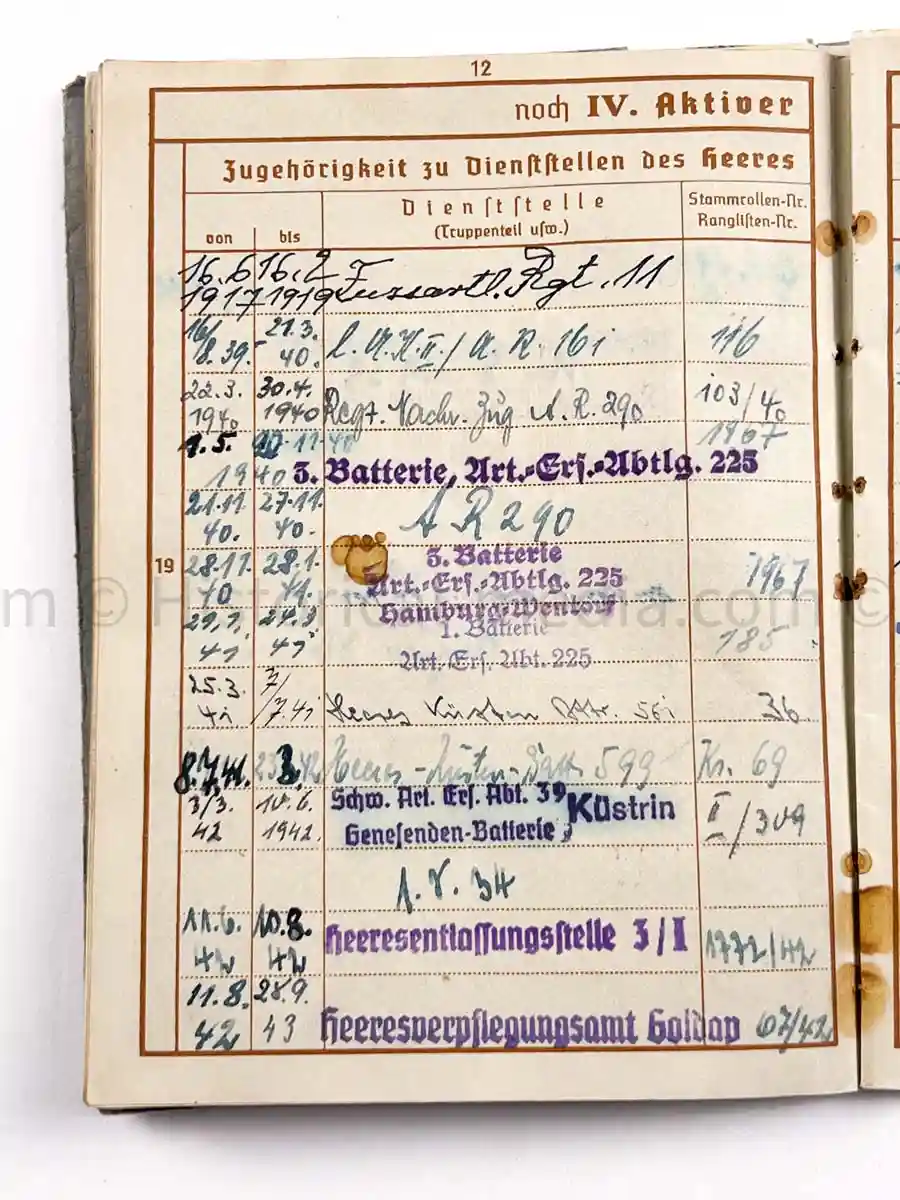 12
noch IV. Aktiver
Zugehörigkeit zu Dienststellen des Heeres
von bis
Dienststelle
(Truppenteil usw.)
Stammrollen-Nr.
Ranglisten-Nr.
16.6 16.2
1917 1919 Fussartl. Rgt. 11
21.3.
8.39. 40. II / A. R. 161 116
22.3. 30.4.
1940 1940 Regt. Nachr. Zug A. R. 290 103/40
1.5. 1967
1940 3. Batterie, Art.-Ers.-Abtlg. 225
21.11. 27.11.
40. 40. A R 290
19
28.11. 28.1. 3. Batterie
40 41. Art.-Ers.-Abtlg. 225 1967
Hamburg-Wentorf
29.1. 24.3 1. Batterie
41 41 Art. Ers. Abt. 225 185
25.3. 7/
41 7.41 Heeres Küsten Bttr. 561 36.
8.7.41. Heeres-Küsten-Batt. 599 Kr. 69
3/3. 10.6. Schw. Art. Ers. Abt. 39 Küstrin
42 1942. Genesenden-Batterie II/309
34
11.6. 10.8.
42 42 Heeresentlassungsstelle 3/I 1772/42
11.8. 28.9.
42 43 Heeresverpflegungsamt Goldap 67/42